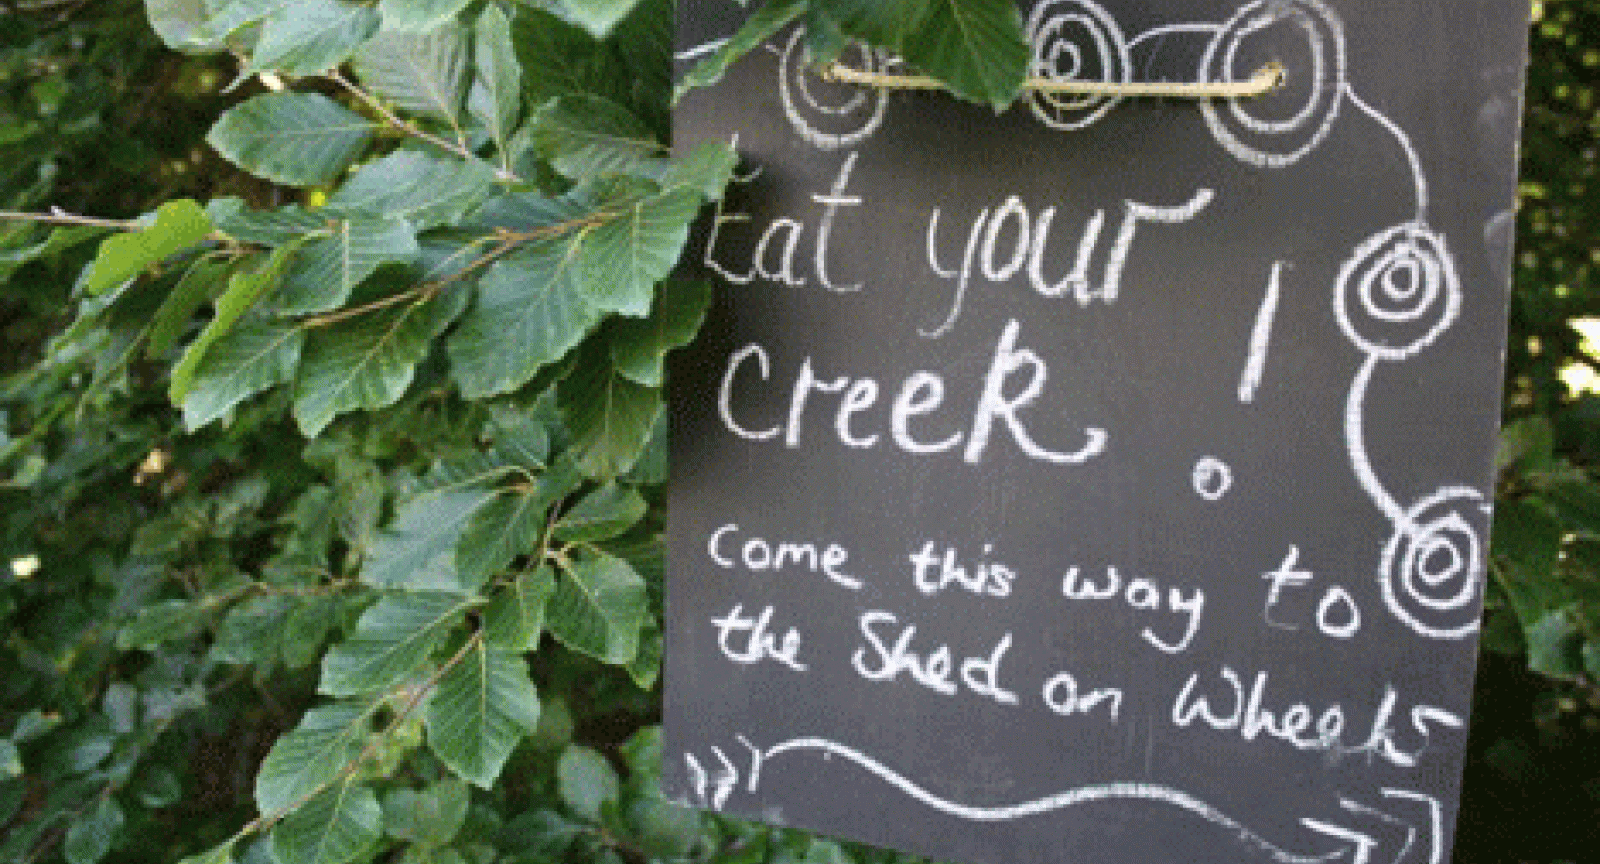 Eat your
Creek!
come this way to
the Shed on Wheels